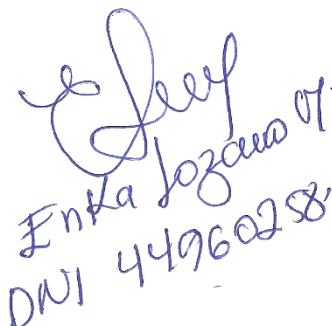 Enka Lozano M
DNI 44960258